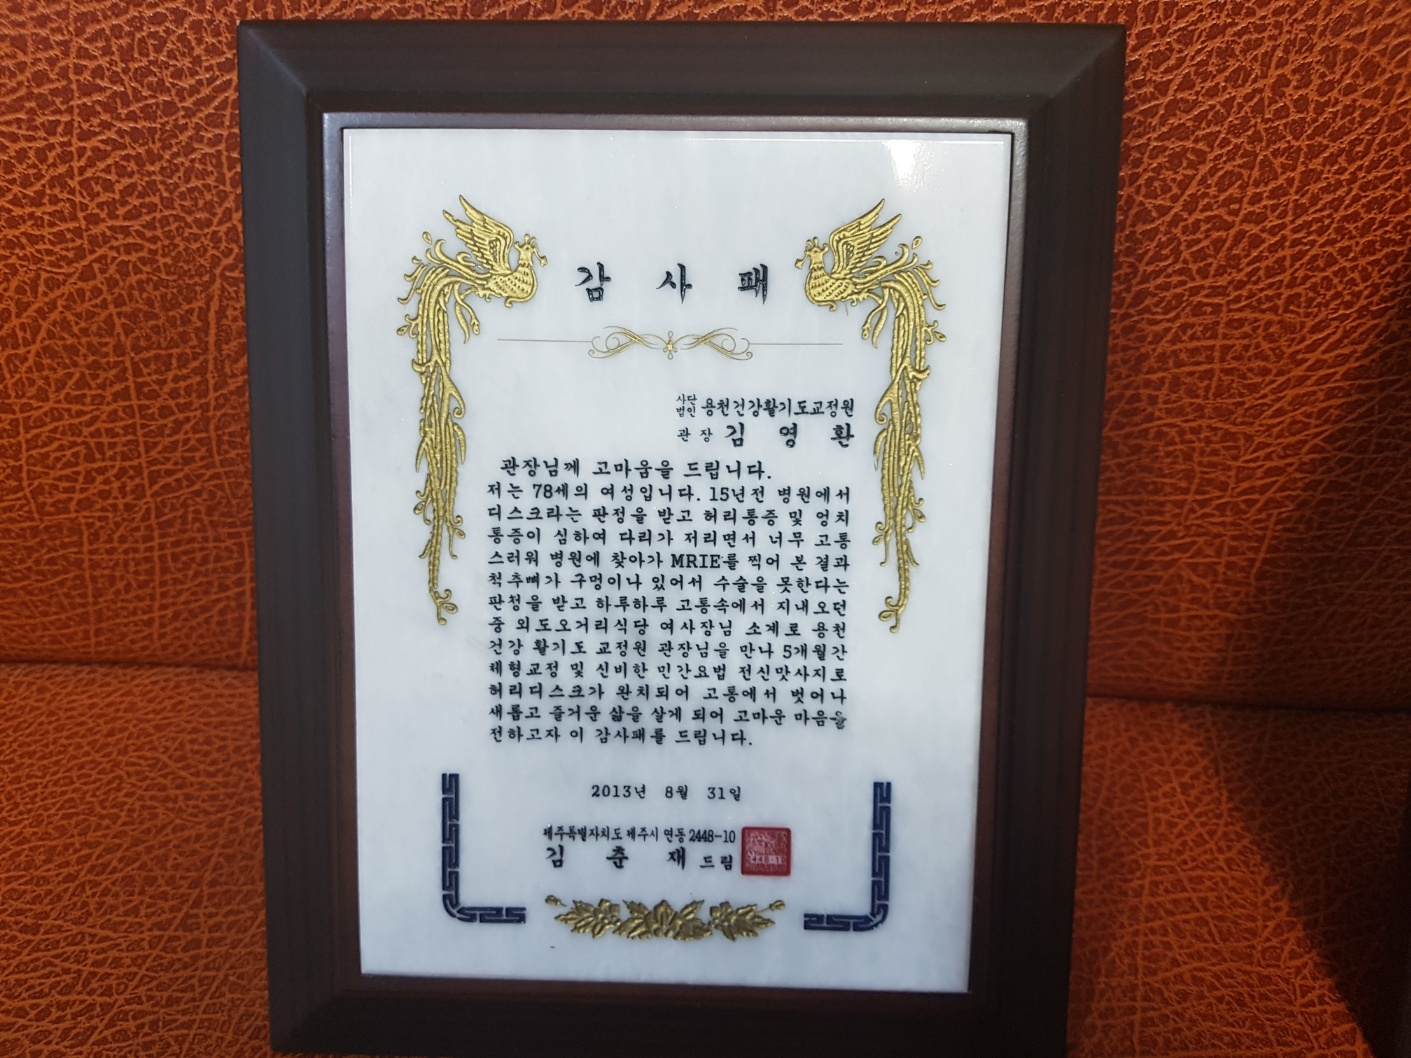 감 사 패
사단법인 용천건강활기도교정원
관 장 김 영 환
관장님께 고마움을 드립니다.
저는 78세의 여성입니다. 15년전 병원에서
디스크라는 판정을 받고 허리통증 및 엉치
통증이 심하여 다리가 저리면서 너무 고통
스러워 병원에 찾아가 MRIE를 찍어 본 결과
척추뼈가 구멍이나 있어서 수술을 못한다는
판청을 받고 하루하루 고통속에서 지내오던
중 외도오거리식당 여사장님 소계로 용천
건강 활기도 교정원 관장님을 만나 5개월간
체형교정 및 신비한 민간요법 전신맛사지로
허리디스크가 완치되어 고통에서 벗어나
새롭고 즐거운 삶을 살게 되어 고마운 마음을
전하고자 이 감사패를 드립니다.
2013년 8월 31일
제주특별자치도 제주시 연동 2448-10
김 춘 재 드림